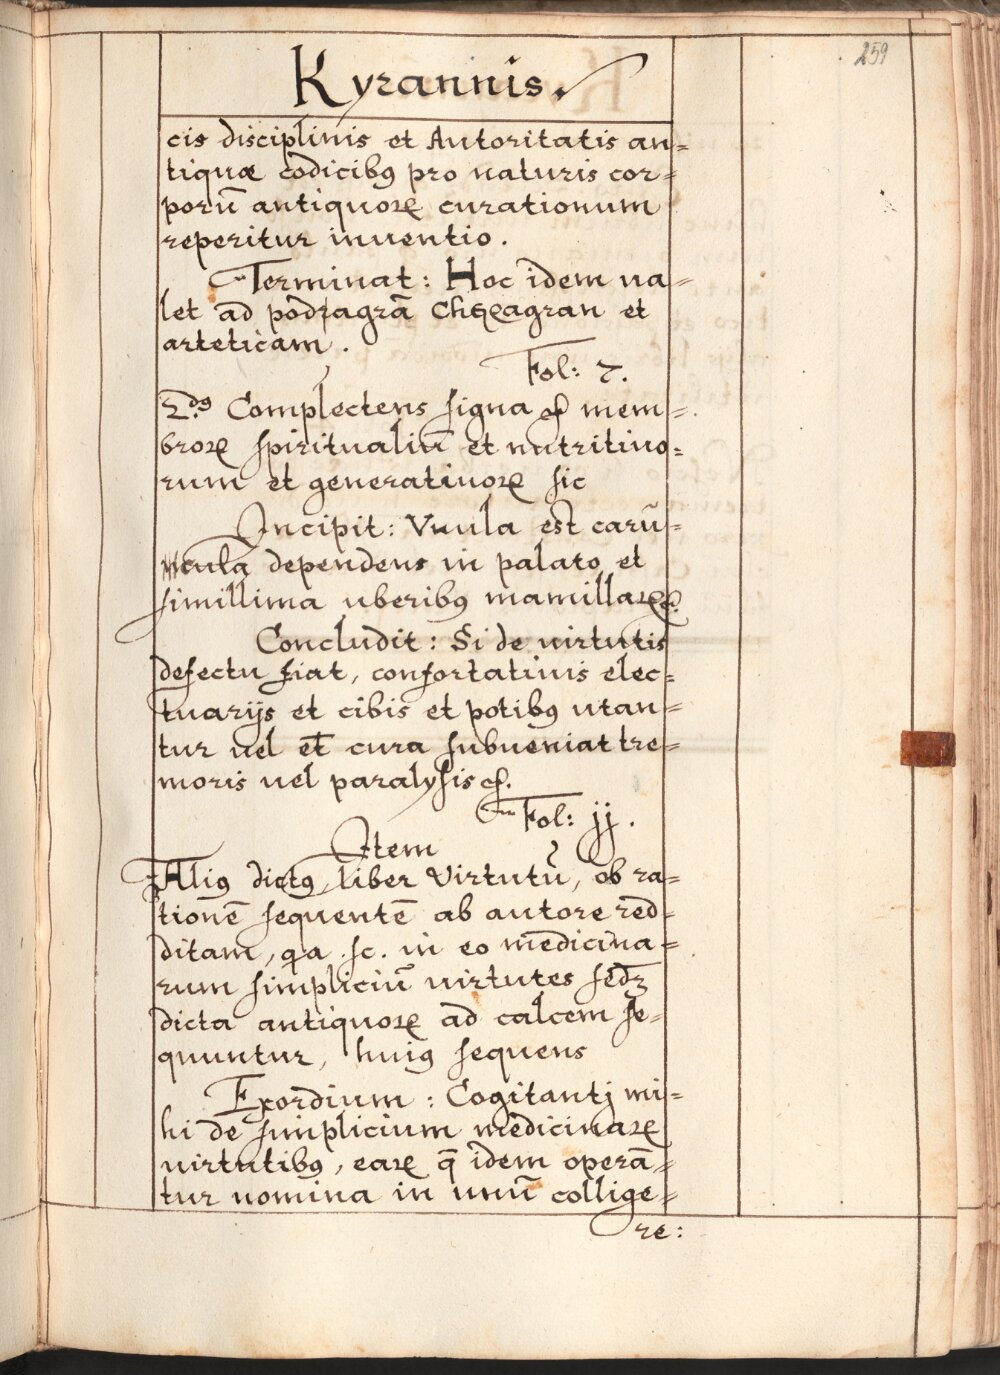 259
Kyrannis.
cis disciplinis et Autoritatis an=
tiquæ codicibꝰ pro naturis cor=
porū antiquoꝝ curationum
reperitur inuentio.
Terminat: Hoc idem ua=
let ad podragrā Chyragran et
arteticam.
Fol: 7.
2.dꝰ Complectens signa et mem=
broꝝ spiritualiū et nutritiuo=
rum et generatiuoꝝ sic
Incipit: Vuula est carū=
cula dependens in palato et
simillima uberibꝰ mamillaꝝ &.
Concludit: Si de uirtutis
defectu fiat, confortatiuis elec=
tuarijs et cibis et potibꝰ utan=
tur uel et cura subueniat tre=
moris uel paralysis &.
Fol: jj.
Item
Aliꝰ dictꝰ liber Virtutū, ob ra=
tionē sequentē ab autore red=
ditam, qa sc. in eo medicina=
rum simpliciū uirtutes sed
dicta antiquoꝝ ad calcem se=
quuntur, huiꝰ sequens
Exordium: Cogitantj mi=
hi de simplicium medicinaꝝ
uirtutibꝰ, eaꝝ q̄ idem operā=
tur nomina in unū collige=
re: